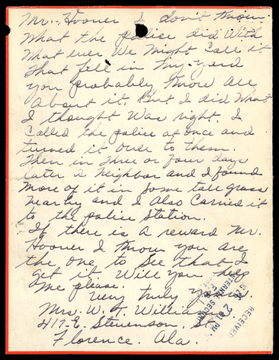 Mr. Hoover I don't know
What the police did with
What ever We might call it
That fell in my yard
you probably know all
About it. But I did What
I thought Was right. I
Called the police at once and
turned it over to them.
Then in three or four days
later a Neighbor and I found
More of it in some tall grass
nearby and I Also Carried it
to the police Station.
If there is a reward Mr.
Hoover I know you are
the one to see that I
get it. Will you help
me please.
Very truly yours
Mrs. W. A. Williams
417-E. Stevenson St.
Florence, Ala.
RECEIVED